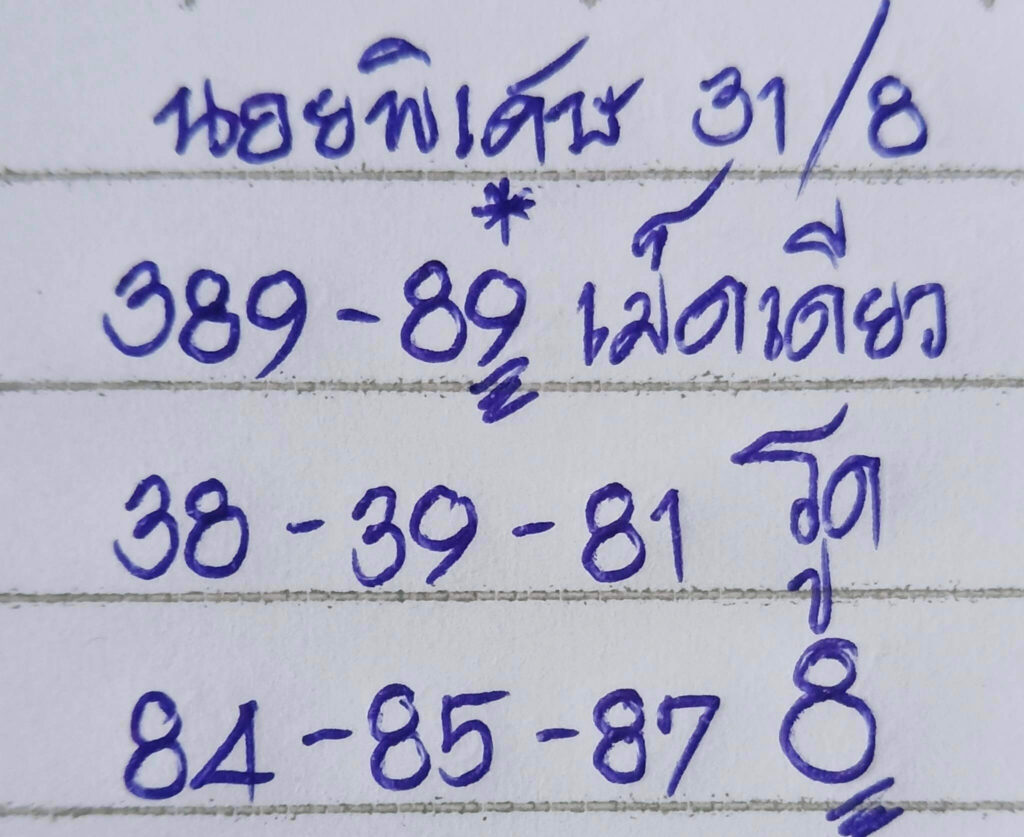 นอยพิเศษ 31/8
*
389-89 เม็ดเดียว
38-39-81 รูด
84-85-87 8